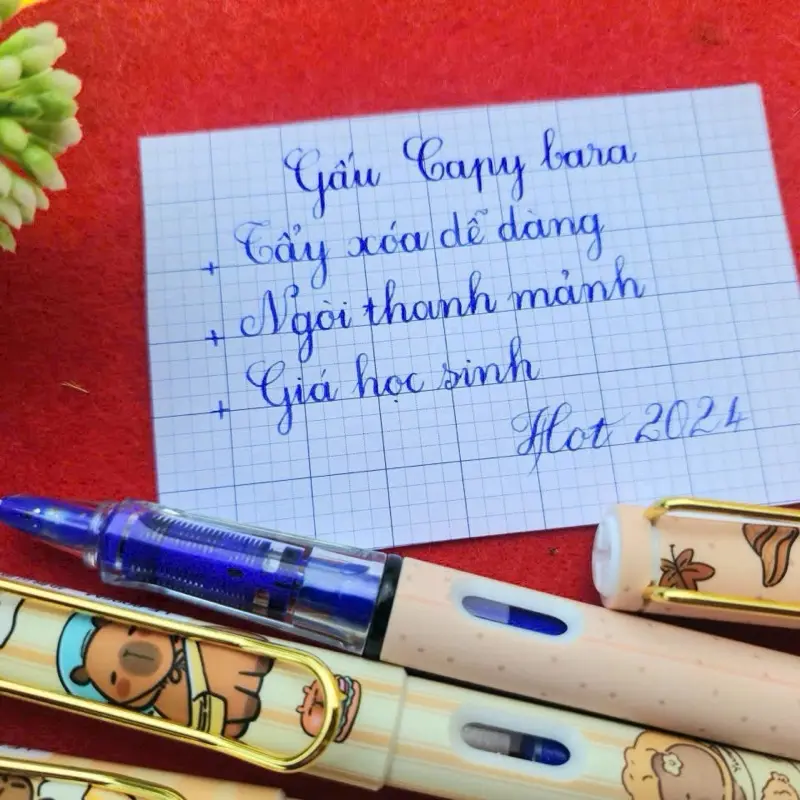 Gấu Capy bara
+ Tẩy xóa dễ dàng
+ Ngòi thanh mảnh
+ Giá học sinh
Hot 2024